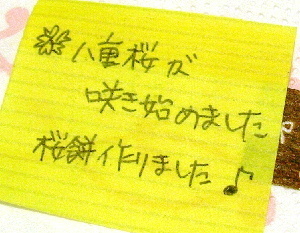 八重桜が
咲き始めました
桜餅作りました♪